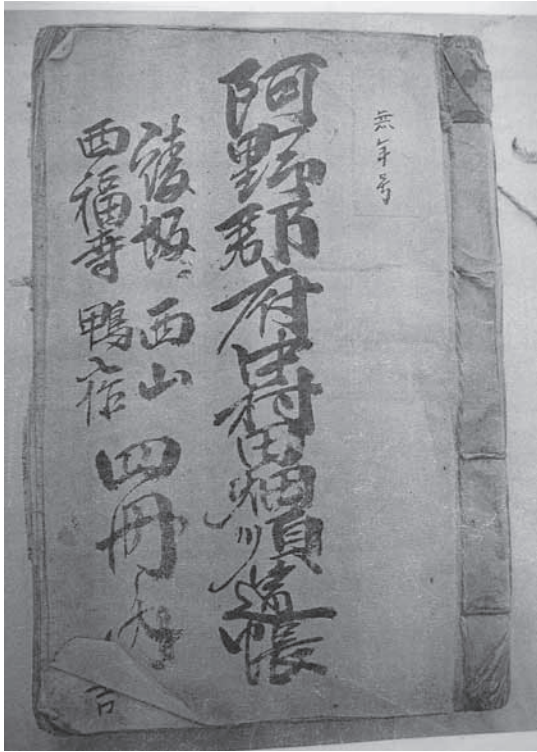 無年号
阿野郡府中村田畑順道帳
綾坂 西山
西福寺 鴨庄
四冊ノ内